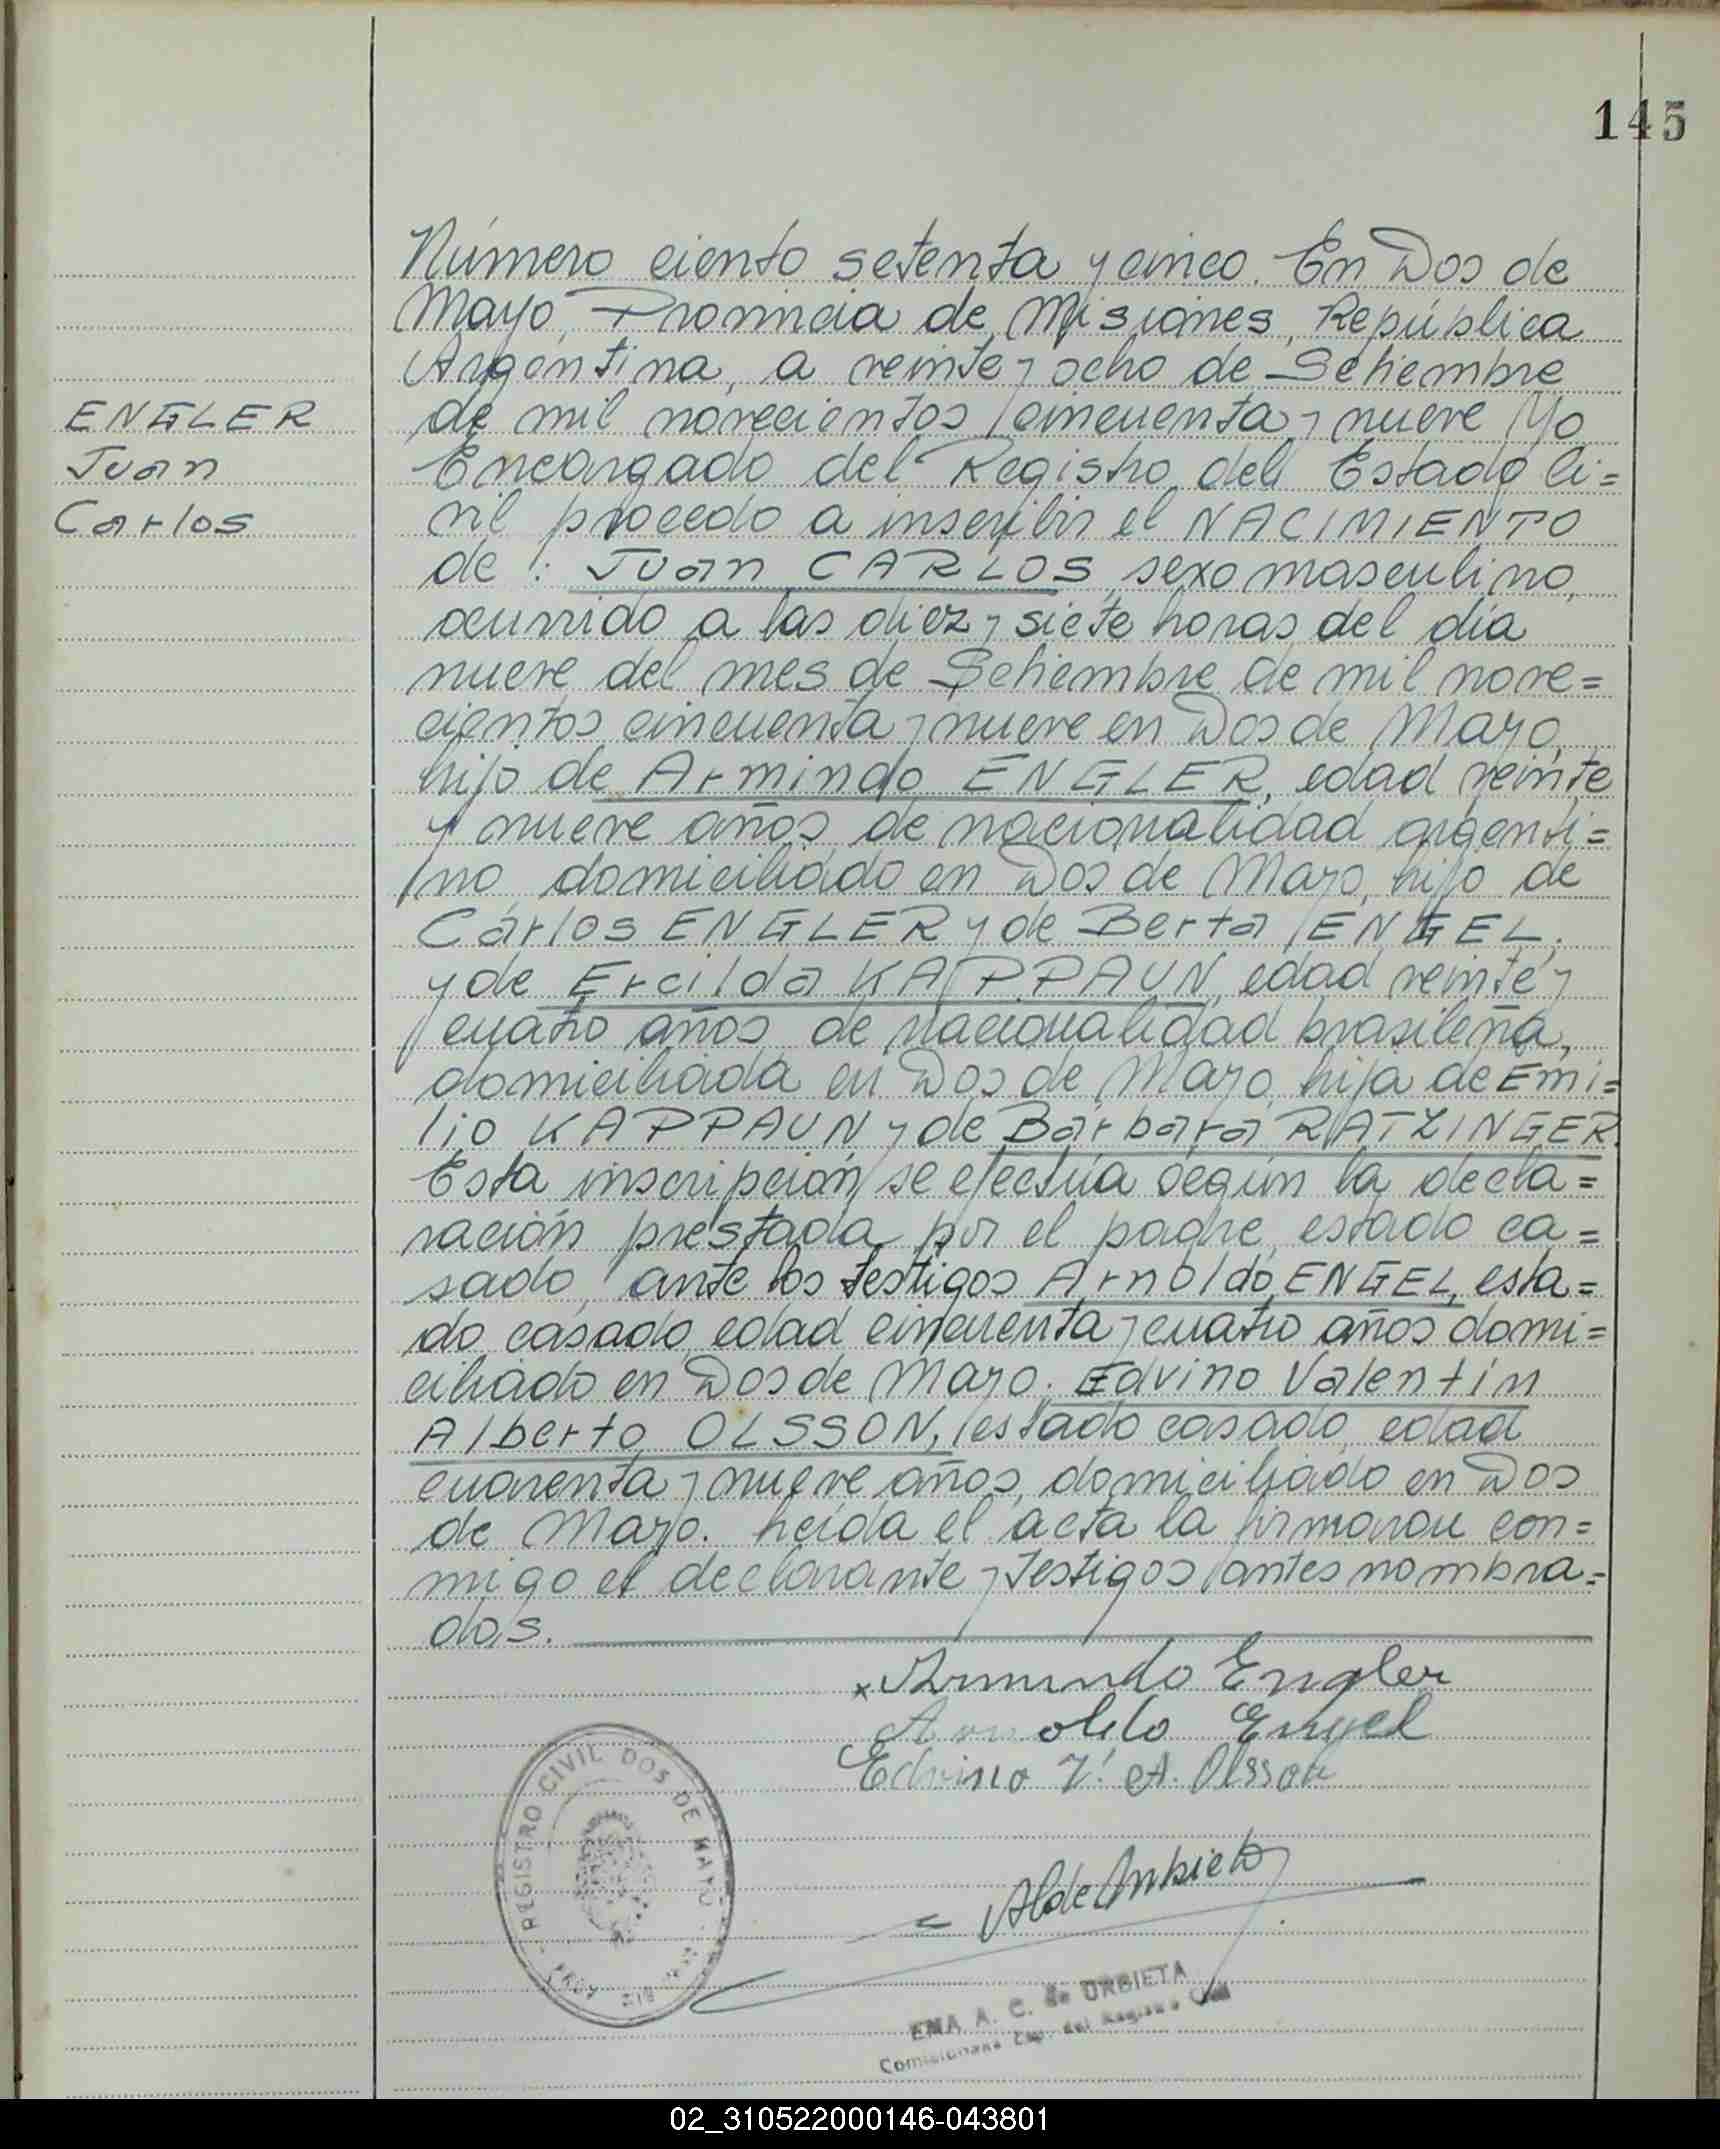 145
Número ciento setenta y cinco. En Dos de
Mayo, Provincia de Misiones, República
Argentina, a veinte y ocho de Setiembre
ENGLER
de mil novecientos cincuenta y nueve Yo
Juan
Encargado del Registro del Estado Ci=
Carlos
vil procedo a inscribir el NACIMIENTO
de : Juan CARLOS, sexo masculino,
ocurrido a las diez y siete horas del día
nueve del mes de Setiembre de mil nove=
cientos cincuenta y nueve en Dos de Mayo,
hijo de Armindo ENGLER, edad veinte
y nueve años, de nacionalidad argenti=
no, domiciliado en Dos de Mayo, hijo de
Carlos ENGLER y de Berta ENGEL,
y de Ercilda KAPPAUN, edad veinte y
cuatro años, de nacionalidad brasileña,
domiciliada en Dos de Mayo, hija de Emi=
lio KAPPAUN y de Bárbara RATZINGER.
Esta inscripción se efectúa según la decla=
ración prestada por el padre, estado ca=
sado, ante los testigos Arnoldo ENGEL, esta=
do casado, edad cincuenta y cuatro años domi=
ciliado en Dos de Mayo. Edvino Valentín
Alberto OLSSON, estado casado, edad
cuarenta y nueve años, domiciliado en Dos
de Mayo. Leída el acta la firmaron con=
migo el declarante y testigos antes nombra=
dos.
x Armindo Engler
Arnoldo Engel
Edvino V. A. Olsson
REGISTRO CIVIL DOS DE MAYO
EMA A. C. de URBIETA
02_310522000146-043801